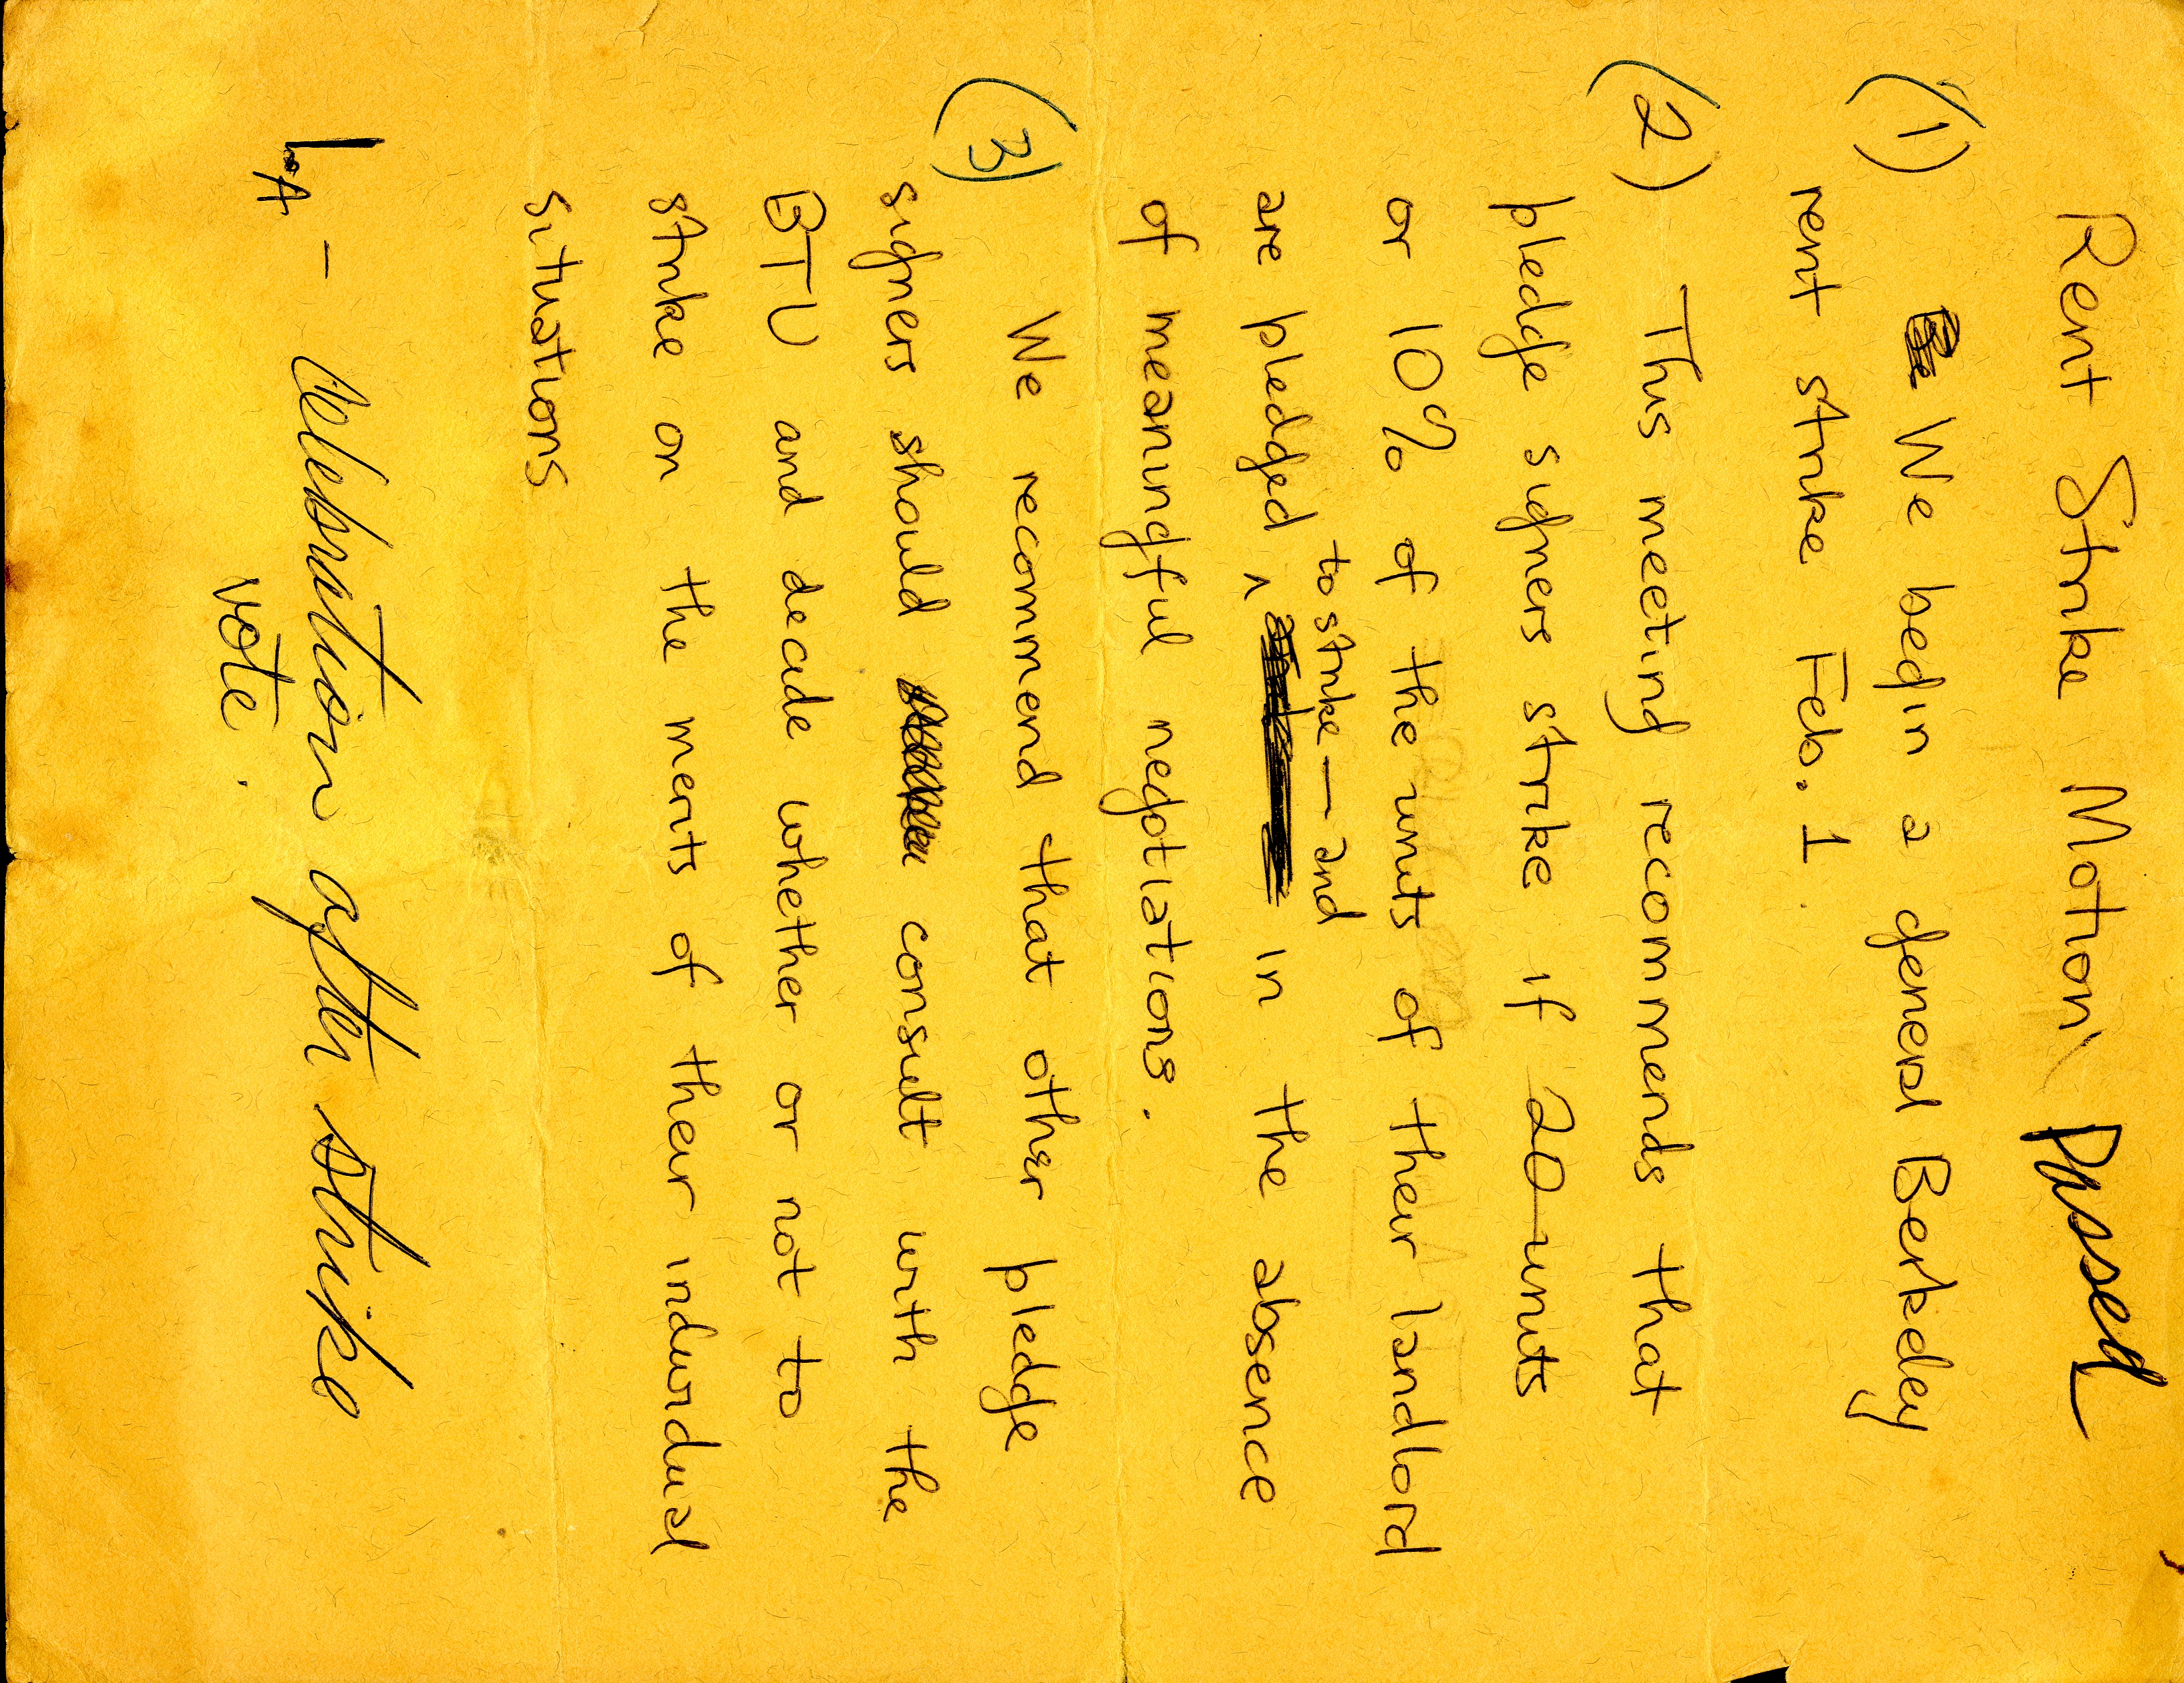 Rent Strike Motion Passed
(1) We begin a general Berkeley
rent strike Feb. 1.
(2) This meeting recommends that
pledge signers strike if 20 units
or 10% of the units of their landlord
are pledged ^ to strike — and in the absence
of meaningful negotiations.
(3) We recommend that other pledge
signers should consult with the
BTU and decide whether or not to
strike on the merits of their individual
situations
A - after strike
vote.